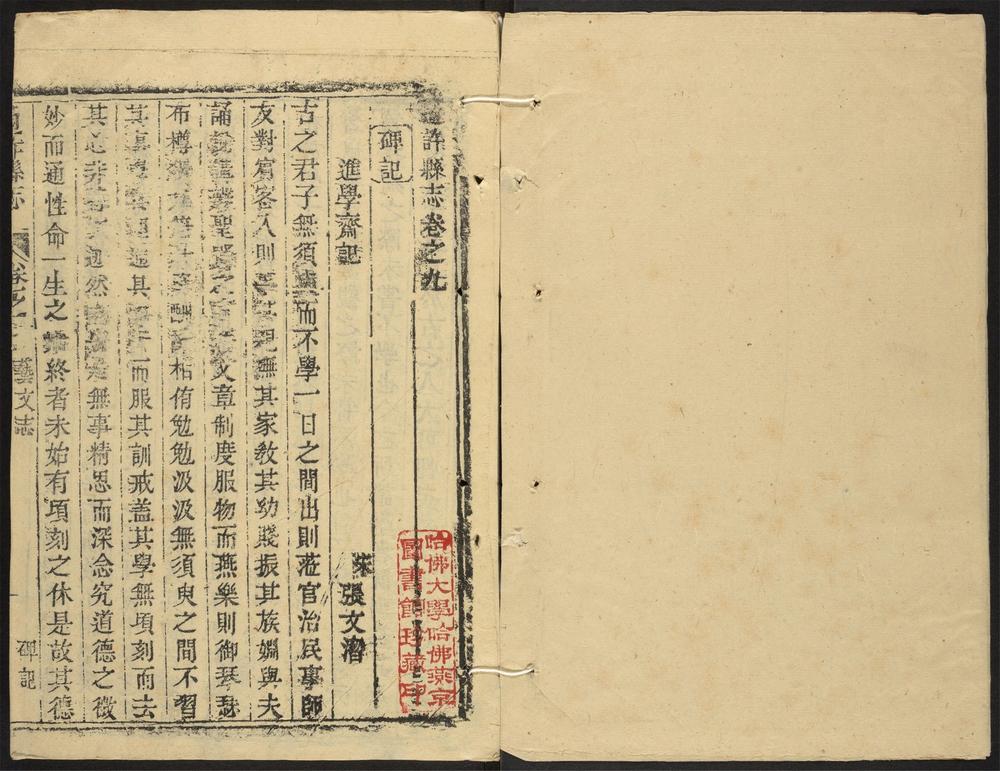 許縣志卷之九
碑記
進學齋記
宋 張文潛
古之君子無須臾而不學一日之間出則蒞官治民事師
友對賓客入則其親無其家教其幼賤振其族婣與夫
誦聖之文章制度服物而燕樂則御琴瑟
布樽侑勉勉汲汲無須臾之間不習
其其而服其訓戒盖其學無頃刻而去
其心然無事精思而深念究道德之微
妙而通性命一生之終者未始有頃刻之休是故其德
縣志 卷之 藝文志 碑記
哈佛大學哈佛燕京
圖書館珍藏印